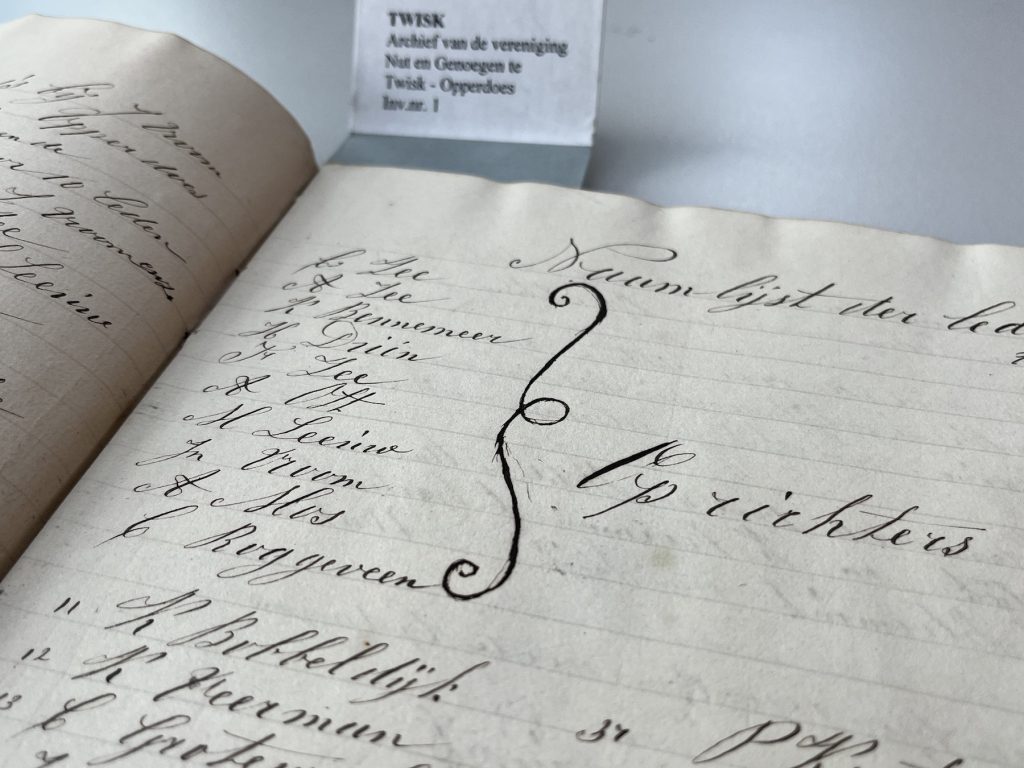 TWISK
Archief van de vereniging
Nut en Genoegen te
Twisk - Opperdoes
Inv.nr. 1
J Vroom
Opperdoes
10 Leden
Leeuw
Naam lijst der led
C Zee
A Zee
K Bennemeer
K Druin
Jr Zee
A Ott
M Leeuw
Jn Vroom
A Mos
C Roggeveen
Oprichters
11 K Bobbeldijk
12 K Veerman
13 C Grote
37 P K